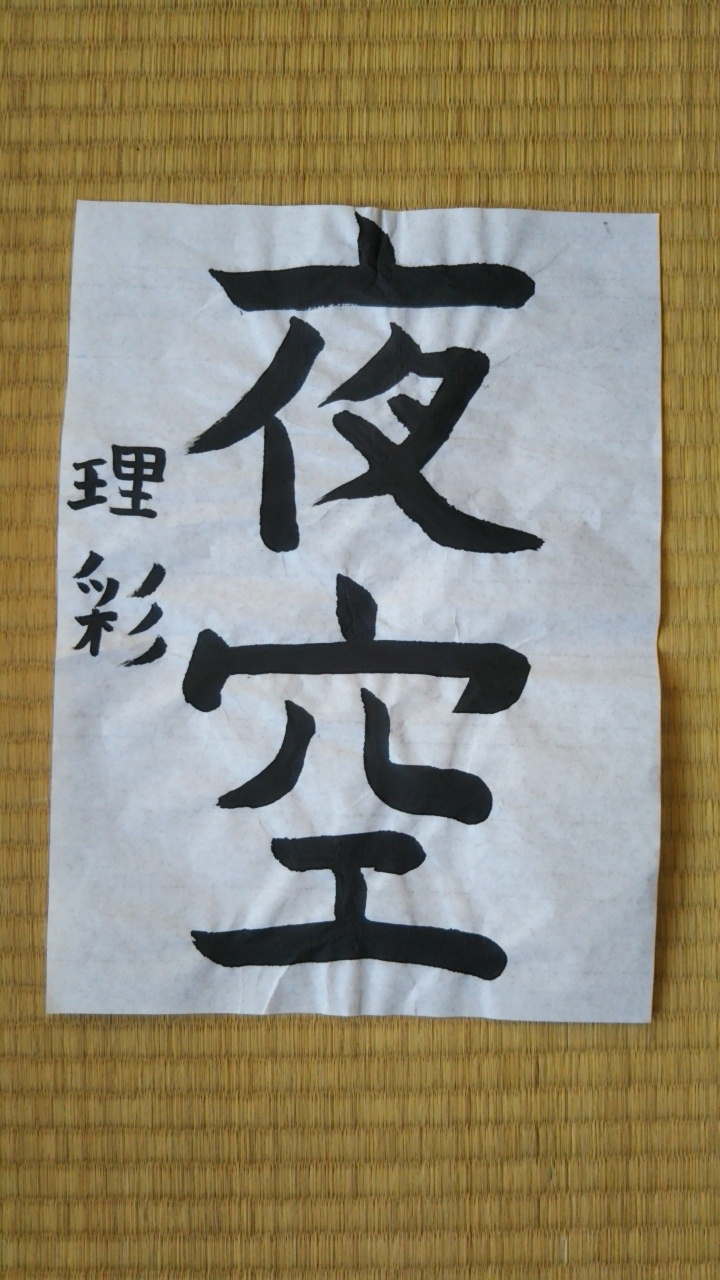 夜空
理彩